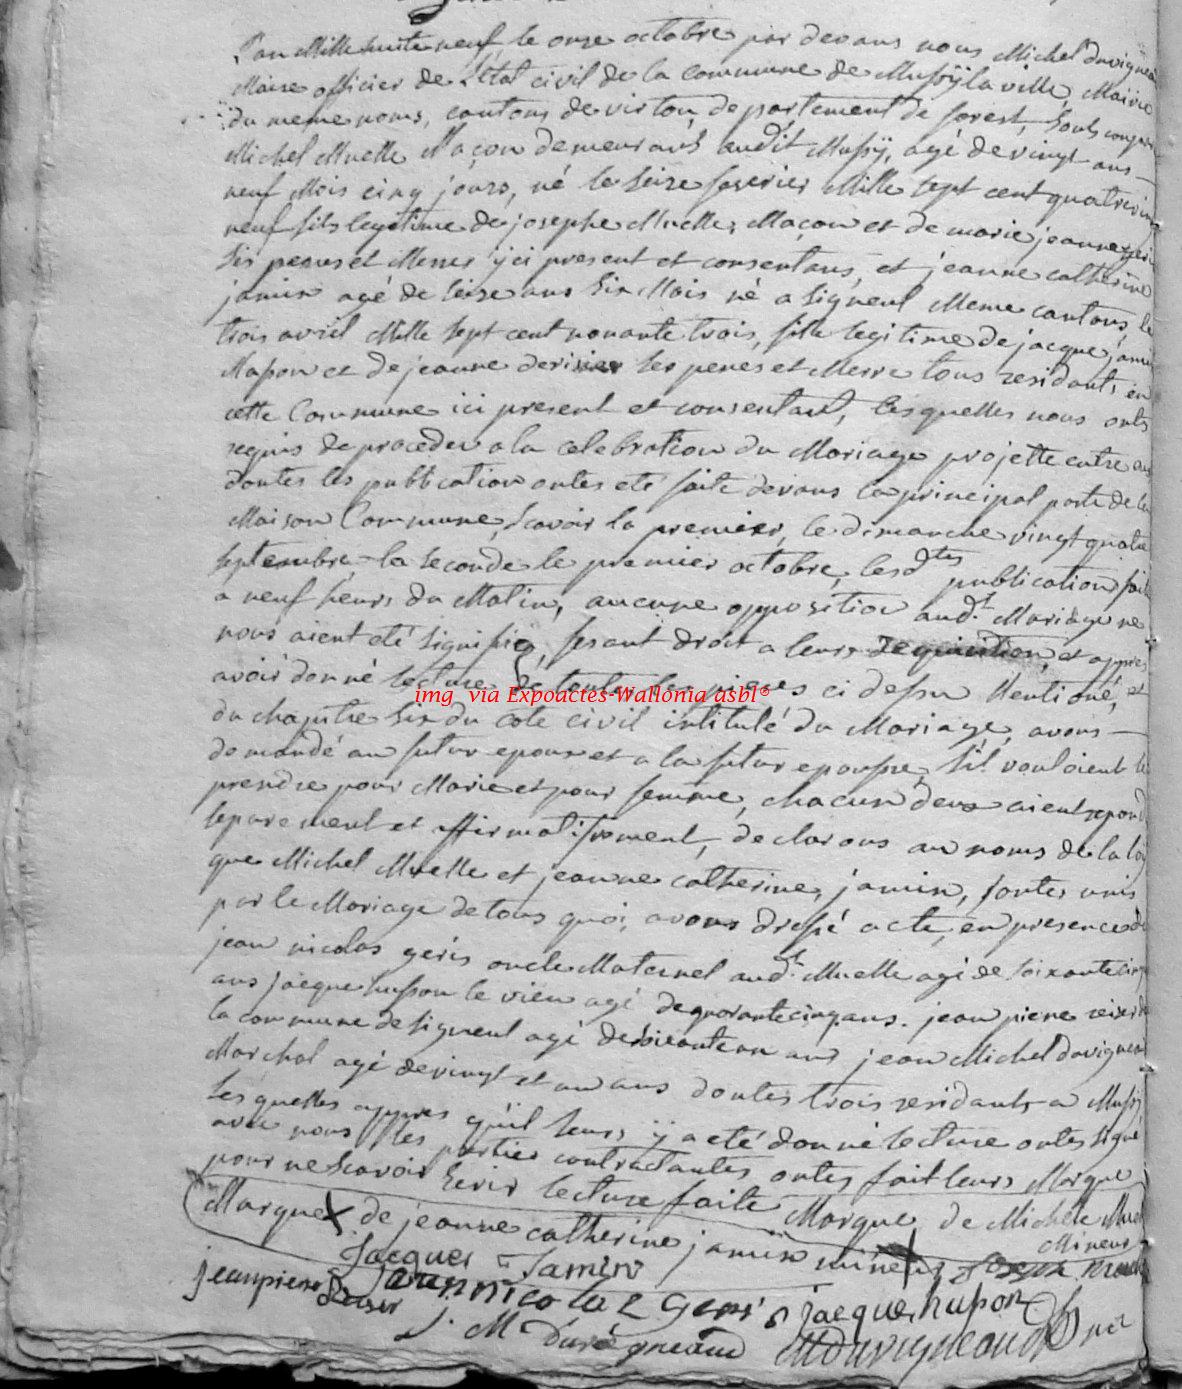 L'an Mille huite neuf, le onze octobre par devans nous Michel duvigneau
Maire officier de l'état civil de la commune de Mussÿ la ville, Mairie
du meme noms, cantons de virton, departement de forest, Souls
Michel Muelle Maçon demeurant audit Mussÿ, agé de vingt ans
neuf Mois cinq jours, né le seize Mille sept cent quatrevin
neuf fils legetime de josephe Muelle, Maçon et de marie jeanne geri
ses peres et Merres ÿci present et consentans, et jeanne catherine
jamin agé de seize ans six Mois né a Signeul Meme cantons, le
trois avril Mille sept cent nonante trois, fille legitime de jacque jamin
Masson et de jeanne ses peres et Merre tous residants en
cette Commune ici present et consentant, lesquelles nous onts
requis de proceder a la celebration du Mariage projette entre eux
dontes les publication ontes eté faite devans la principal porte de la
Maison Commune, Scavoir la premier, le dimanche vingt quatre
septembre la seconde le premier octobre, lesdtes publication fait
a neuf heurs du Matin, aucune opposition aud.t Mariage ne
nous aient eté signifiez, fesant droit a leurs requisition, et appres
avoir donné lecture de toutes les pieces ci dessu Mentioné, et
du chapitre six du cote civil intitulé du Mariage, avons
demandé au futur epoux et a la futur epousse, s'il vouloient le
prendre pour Marie et pour femme, chacun deux aient repond
separement et affirmatifvement, declarons au noms de la loy
que Michel Muelle et jeanne catherine, jamin, sontes unis
par le Mariage de tous quoi, avons dressé acte, en presence de
jean nicolas geris oncle Maternel aud.t Muelle agé de soixante cinq
ans jacque husson le vieu agé de quarante cinq ans. jean piere reiser de
la commune de signeul agé de soixante un ans jean Michel duvigneau
Marchal agé de vingt et un ans dontes trois residants a Mussÿ
Lesquelles appres qu'il leurs ÿ a eté donné lecture ontes signé
avec nous les partier contractantes ontes fait leurs Marque
pour ne scavoir Ecrir lecture faite
Marque de jeanne catherine jamin mineur Marque de Michele Muelle
Mineur
Jacques Jamin Joseph
jeanpiere Reiser Jean nicolas Geris jacque husson
J. M Duvigneaud MDuvigneaud
img via Expoactes-Wallonia asbl®